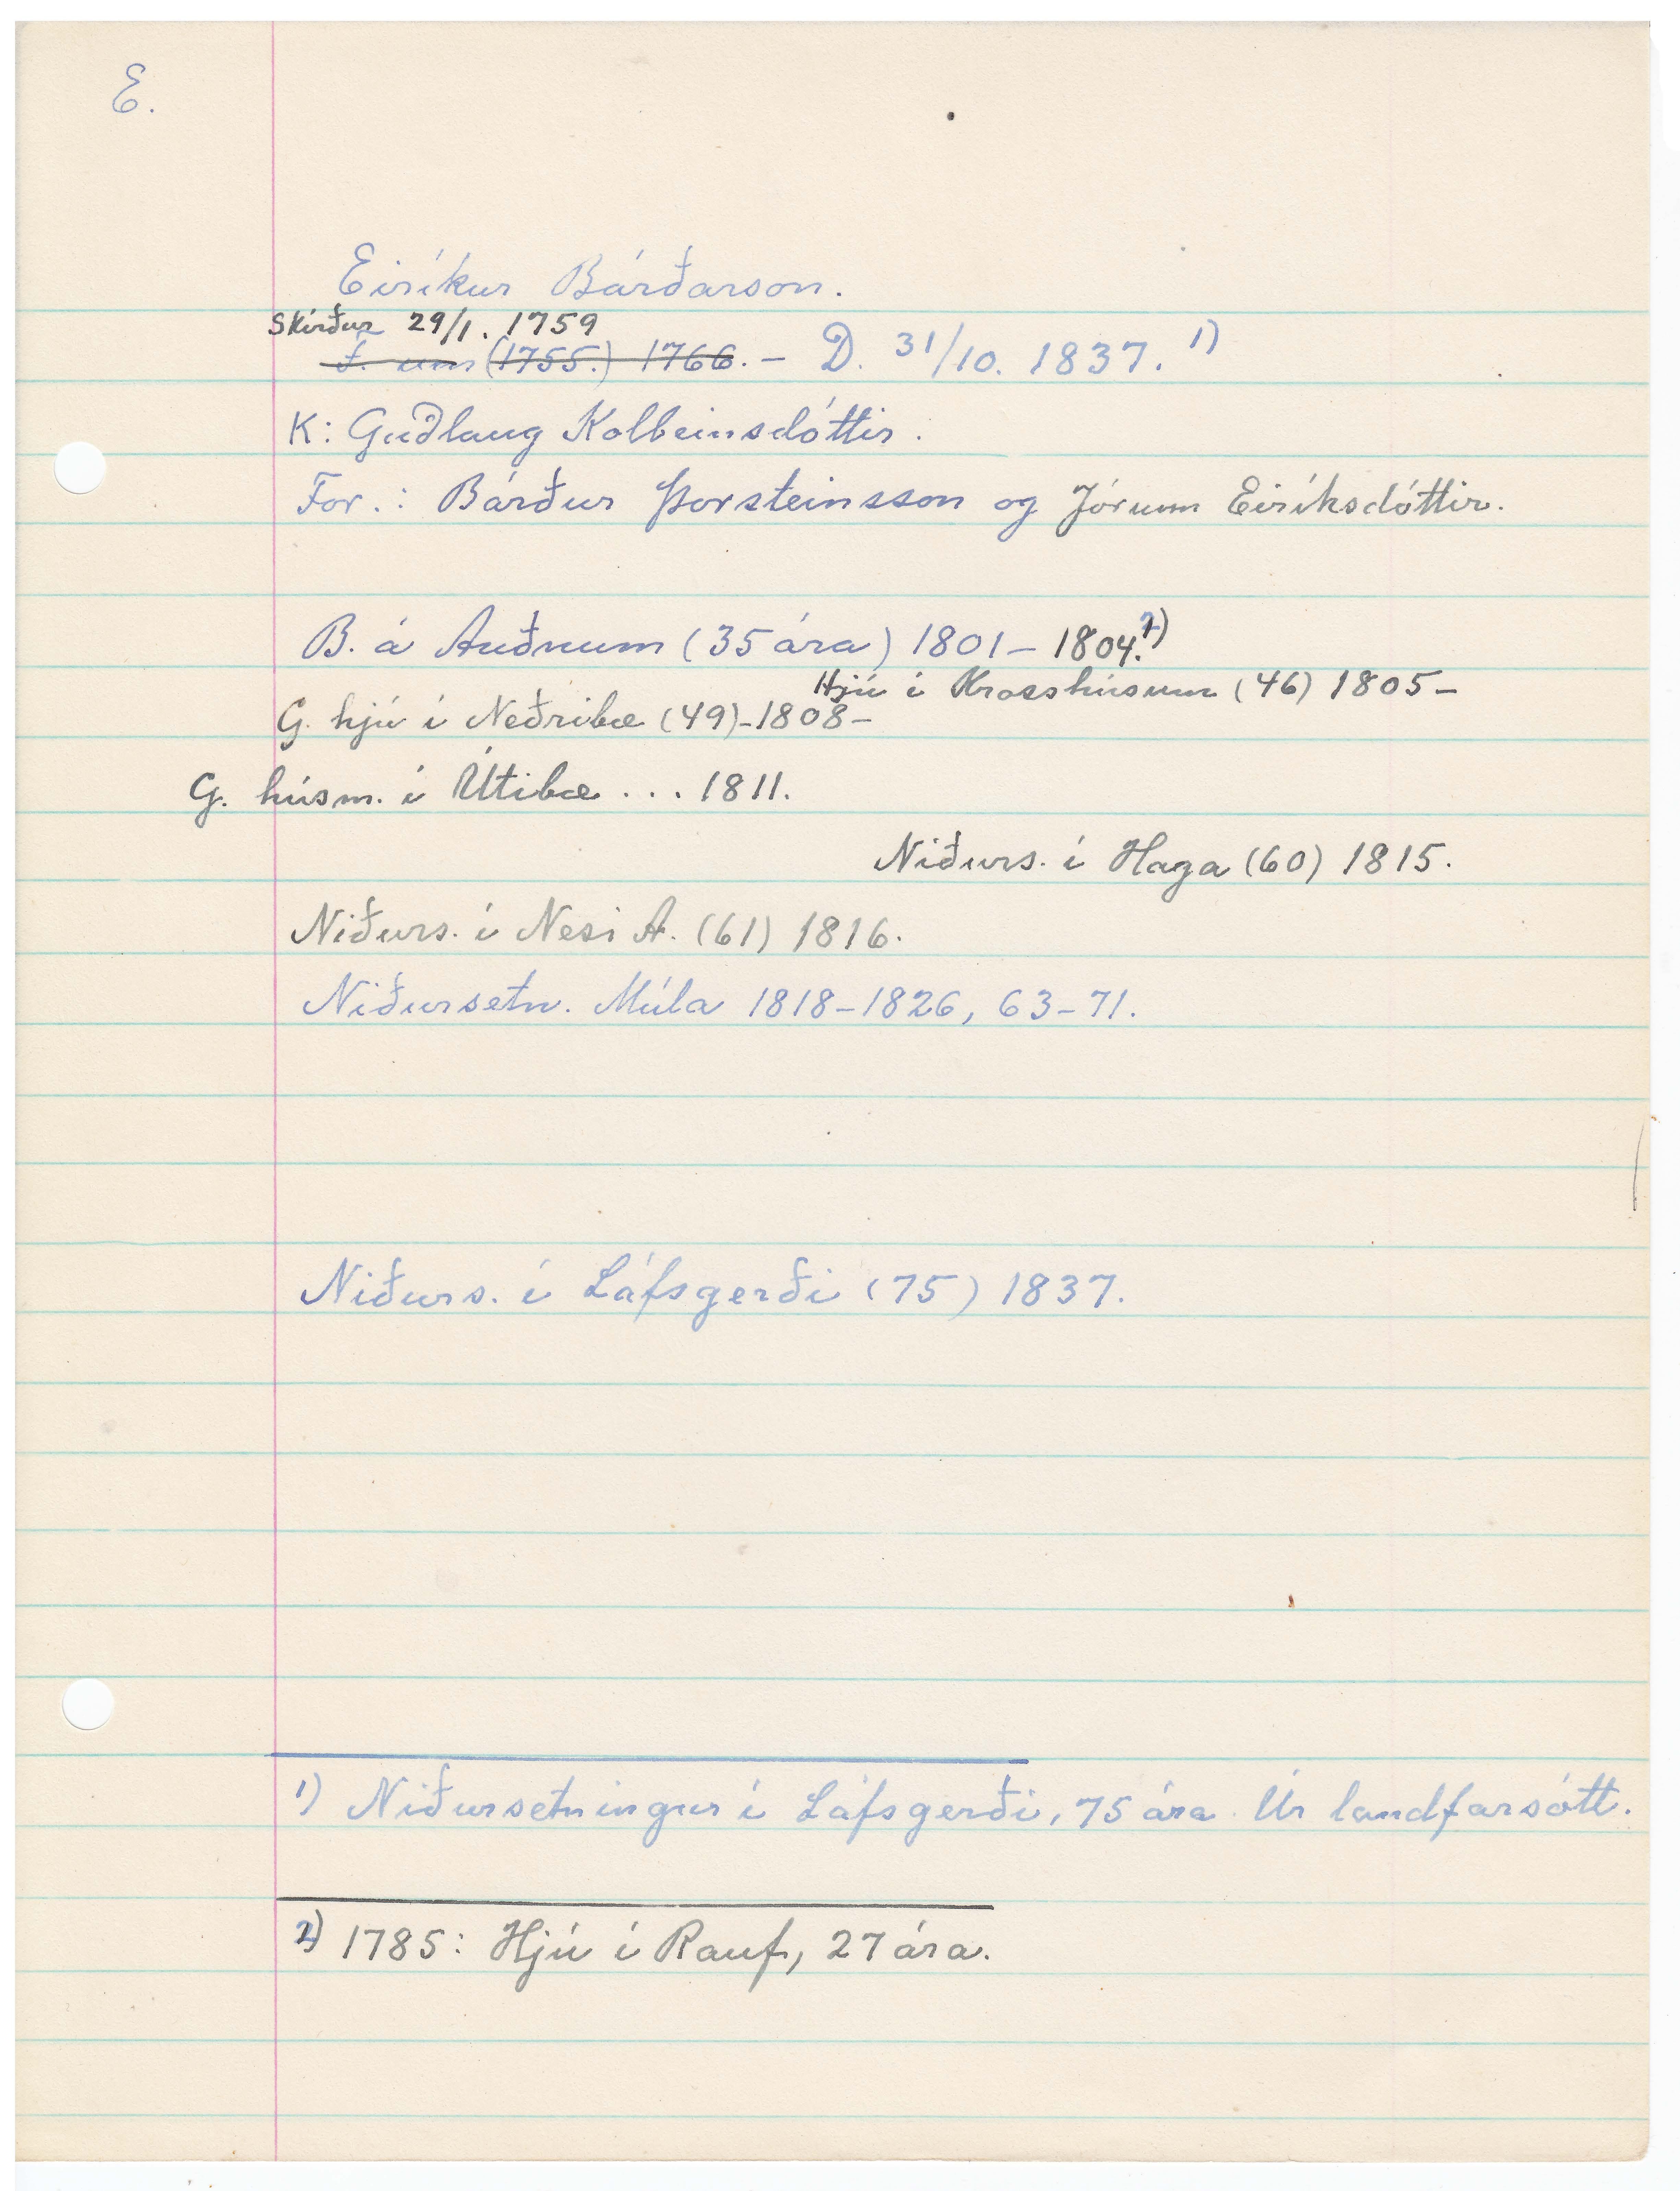 E.
Eiríkur Bárðarson.
Skírður 29/1. 1759
F. um (1755.) 1766. – D. 31/10. 1837. 1)
K: Guðlaug Kolbeinsdóttir.
For.: Bárður Þorsteinsson og Jórunn Eiríksdóttir.
B. á Auðnum (35 ára) 1801 – 1804. 2)
Hjú í Krosshúsum (46) 1805 –
G. hjú í Neðribæ (49) – 1808 –
G. húsm. í Útibæ . . . 1811.
Niðurs. í Haga (60) 1815.
Niðurs. í Nesi A. (61) 1816.
Niðursetn. Múla 1818 – 1826, 63 – 71.
Niðurs. í Láfsgerði (75) 1837.
1) Niðursetningur í Láfsgerði, 75 ára. Úr landfarsótt.
2) 1785: Hjú í Rauf, 27 ára.